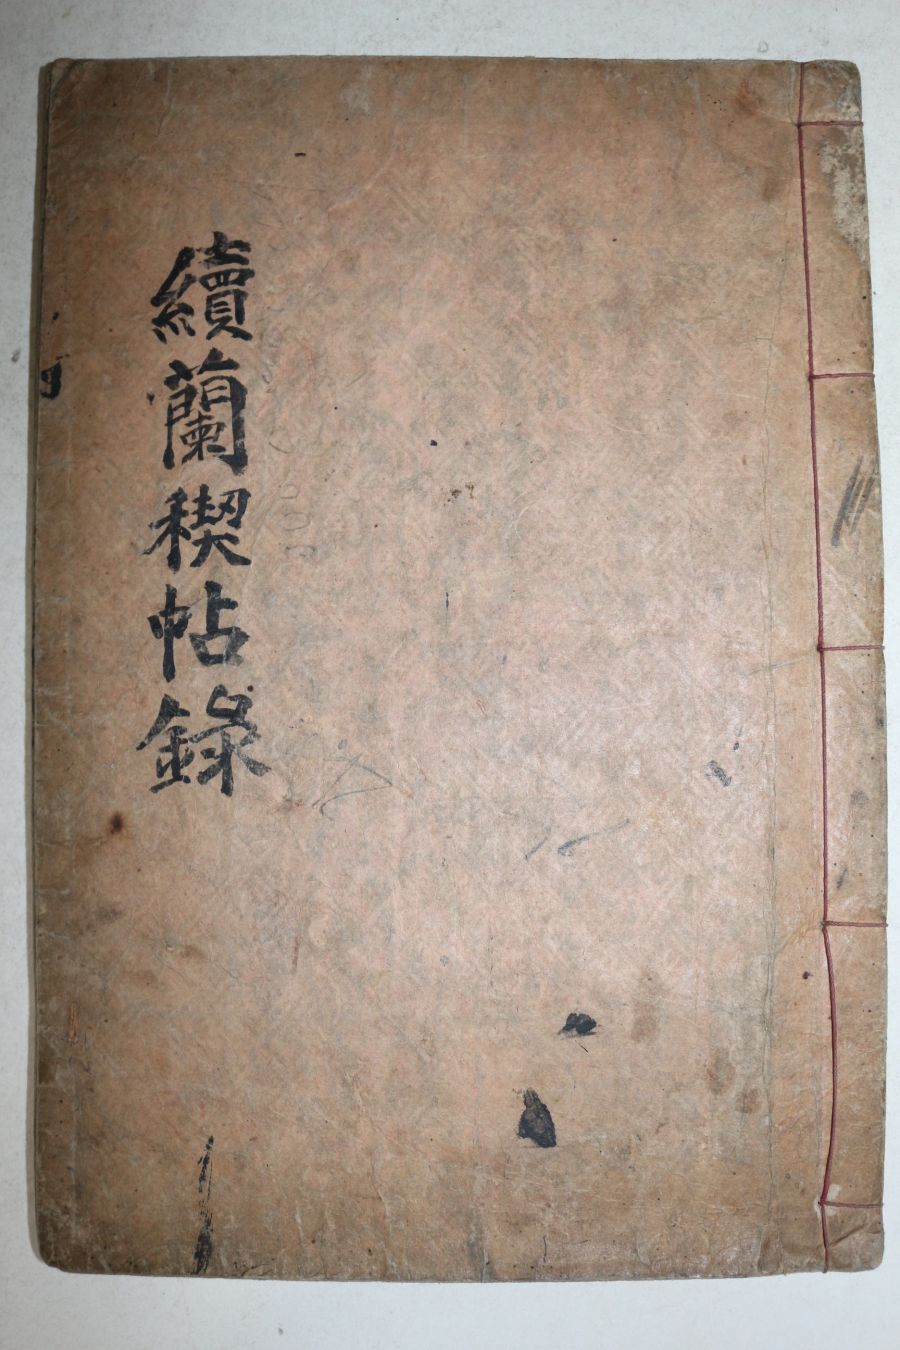 續蘭稧帖錄